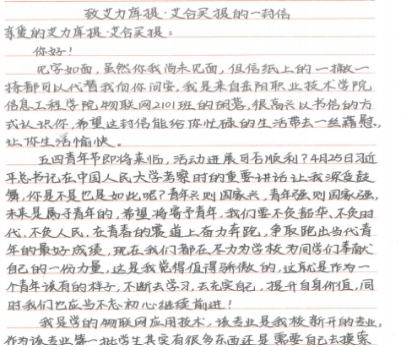 致艾力库提·艾合买提的一封信
尊重的艾力库提·艾合买提：
你好！
见字如面，虽然你我尚未见面，但信纸上的一撇一
捺都可以代替我向你问安。我是来自岳阳职业技术学院
信息工程学院，物联网2101班的胡蓉，很高兴以书信的方
式认识你，希望这封信能给你忙碌的生活带去一丝藉慰，
让你生活愉快。
五四青年节即将来临，活动进展可否顺利？4月25日习近
平总书记在中国人民大学考察时的重要讲话让我深受鼓
舞，你是不是也是如此呢？青年兴则国家兴，青年强则国家强，
未来是属于青年的，希望将寄予青年，我们要不负韶华、不负时
代、不负人民，在青春的赛道上奋力奔跑，争取跑出当代青
年的最好成绩，现在我们都在尽力为学校为同学们奉献
自己的一份力量，这是我觉得值得骄傲的，这就是作为一
个青年该有的样子，不断去学习，去充实自己，提升自身价值，同
时我们也应当不忘初心继续前进！
我是学的物联网应用技术，该专业是我校新开的专业，
作为该专业第一批学生其实有很多东西还是需要自己去摸索